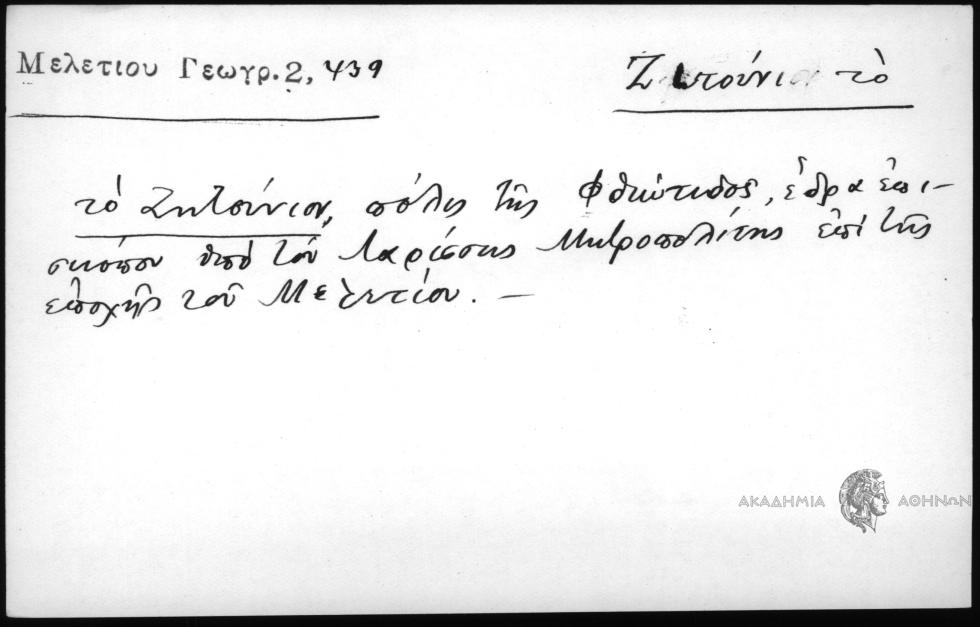 Μελετιου Γεωγρ. 2, 439
Ζιτούνι τὸ
τὸ Ζητούνιον, πόλις τῆς Φθιώτιδος, ἕδρα ἐπι-
σκόπου ὑπὸ τὸν Λαρίσσης Μητροπολίτης ἐπὶ τῆς
ἐποχῆς τοῦ Μελετίου. —
ΑΚΑΔΗΜΙΑ ΑΘΗΝΩΝ